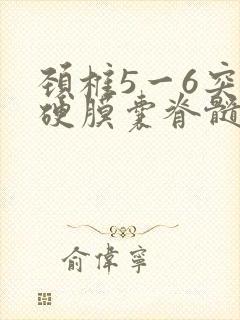 颈椎5一6突
硬膜囊脊髓
俞偉寧